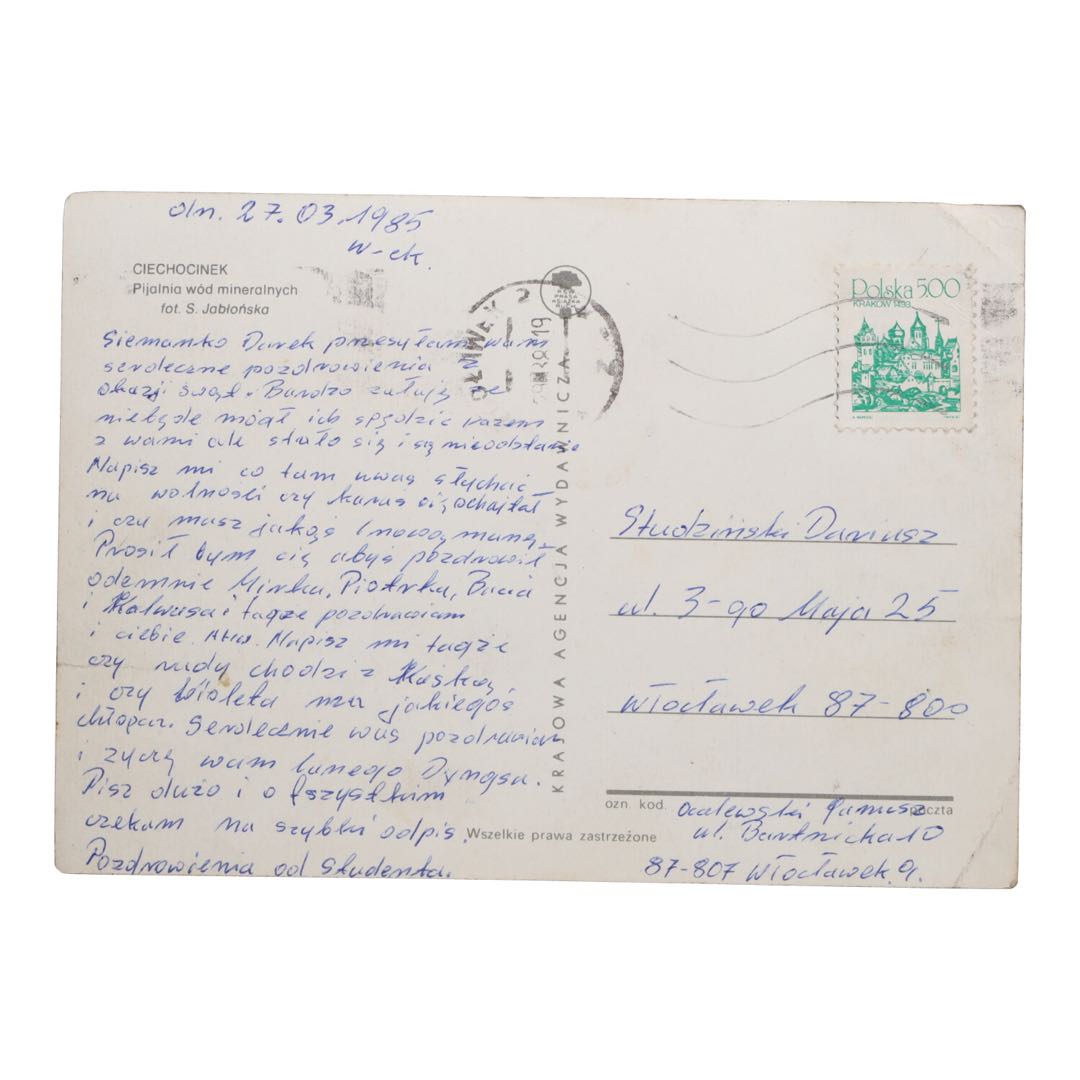 dn. 27.03.1985
w-ek.
CIECHOCINEK
Pijalnia wód mineralnych
fot. S. Jabłońska
Siemanko Darek przesyłam wam
serdeczne pozdrowienia z
okazji świąt. Bardzo żałuję że
niebęde mógł ich spędzic razem
z wami ale stało się i są nieodbłanie
Napisz mi co tam uwas słychać
na wolnosci czy karas cię ochajtał
i czy masz jakąś nową manę.
Prosił bym cię abyś pozdrowił
odemnie Mirka, Piotrka, Bucia
i Kalwusa i tagże pozdrawiam
i ciebie. Napisz mi tagże
czy rudy chodzi z Kaśką,
i czy Wioleta ma jakiegoś
chłopa. Serdecznie was pozdrawiam
i życzę wam lanego Dyngsa.
Pisz dużo i o fszystkim
czekam na szybki odpis.
Pozdrowienia od Studenta.
KRAJOWA AGENCJA WYDAWNICZA
RSW
PRASA
KSIĄŻKA
RUCH
Polska 500
KRAKÓW 1493
Studziński Dariusz
ul. 3-go Maja 25
Włocławek 87-800
ozn. kod.
poczta
Janusz
ul. Bartnicka 10
87-807 Włocławek 9.
Wszelkie prawa zastrzeżone